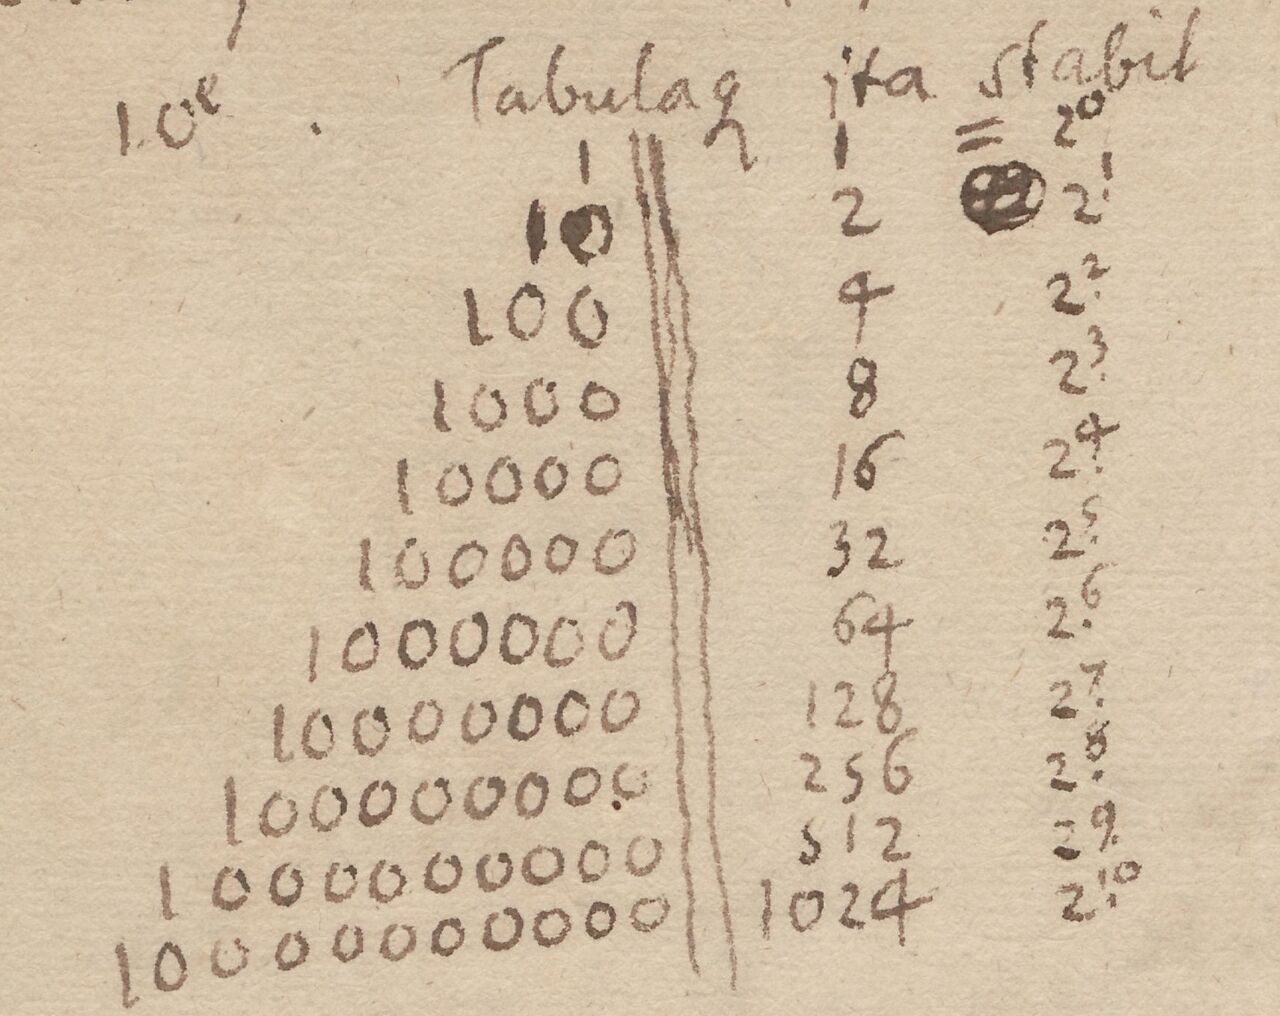 10e . Tabulaq ita stabit
1 1 = 2⁰
10 2 2¹
100 4 2².
1000 8 2³.
10000 16 2⁴.
100000 32 2⁵.
1000000 64 2⁶.
10000000 128 2⁷.
100000000 256 2⁸.
1000000000 512 2⁹.
10000000000 1024 2¹⁰.